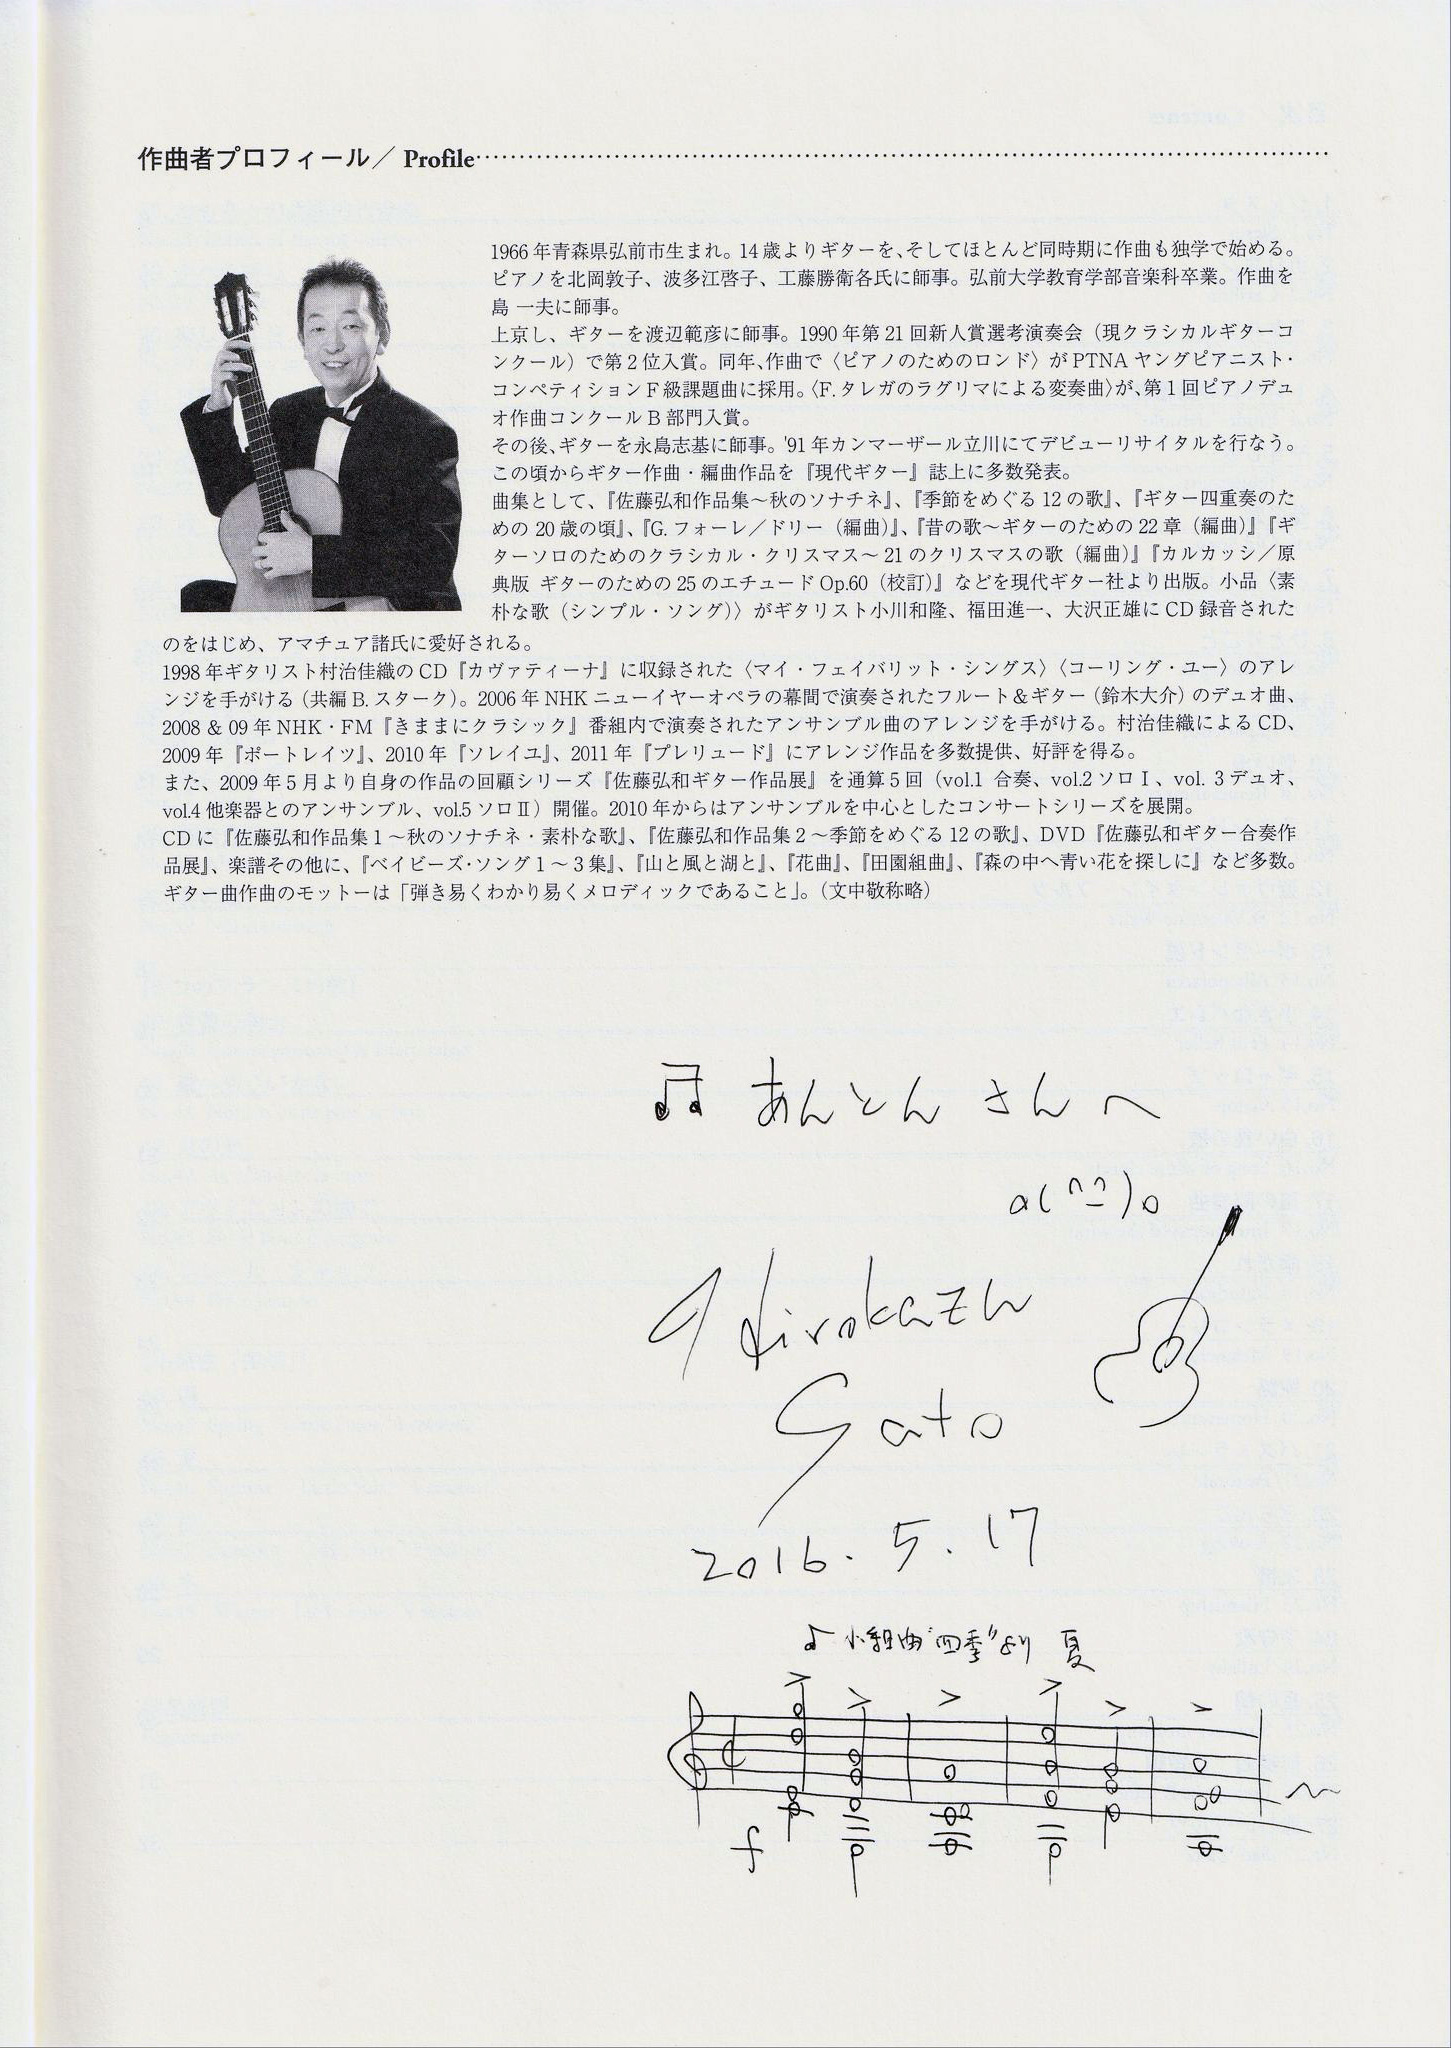 作曲者プロフィール／ Profile
1966年青森県弘前市生まれ。14歳よりギターを、そしてほとんど同時期に作曲も独学で始める。
ピアノを北岡敦子、波多江啓子、工藤勝衛各氏に師事。弘前大学教育学部音楽科卒業。作曲を
島 一夫に師事。
上京し、ギターを渡辺範彦に師事。1990年第21回新人賞選考演奏会（現クラシカルギターコ
ンクール）で第2位入賞。同年、作曲で〈ピアノのためのロンド〉がPTNAヤングピアニスト・
コンペティションF級課題曲に採用。〈F.タレガのラグリマによる変奏曲〉が、第1回ピアノデュ
オ作曲コンクールB部門入賞。
その後、ギターを永島志基に師事。'91年カンマーザール立川にてデビューリサイタルを行なう。
この頃からギター作曲・編曲作品を『現代ギター』誌上に多数発表。
曲集として、『佐藤弘和作品集～秋のソナチネ』、『季節をめぐる12の歌』、『ギター四重奏のた
めの20歳の頃』、『G.フォーレ／ドリー（編曲）』、『昔の歌～ギターのための22章（編曲）』『ギ
ターソロのためのクラシカル・クリスマス～21のクリスマスの歌（編曲）』『カルカッシ／原
典版 ギターのための25のエチュードOp.60（校訂）』などを現代ギター社より出版。小品〈素
朴な歌（シンプル・ソング）〉がギタリスト小川和隆、福田進一、大沢正雄にCD録音された
のをはじめ、アマチュア諸氏に愛好される。
1998年ギタリスト村治佳織のCD『カヴァティーナ』に収録された〈マイ・フェイバリット・シングス〉〈コーリング・ユー〉のアレ
ンジを手がける（共編B.スターク）。2006年NHKニューイヤーオペラの幕間で演奏されたフルート＆ギター（鈴木大介）のデュオ曲、
2008 & 09年NHK・FM『きままにクラシック』番組内で演奏されたアンサンブル曲のアレンジを手がける。村治佳織によるCD、
2009年『ポートレイツ』、2010年『ソレイユ』、2011年『プレリュード』にアレンジ作品を多数提供、好評を得る。
また、2009年5月より自身の作品の回顧シリーズ『佐藤弘和ギター作品展』を通算5回（vol.1 合奏、vol.2ソロⅠ、vol. 3デュオ、
vol.4他楽器とのアンサンブル、vol.5ソロⅡ）開催。2010年からはアンサンブルを中心としたコンサートシリーズを展開。
CDに『佐藤弘和作品集1～秋のソナチネ・素朴な歌』、『佐藤弘和作品集2～季節をめぐる12の歌』、DVD『佐藤弘和ギター合奏作
品展』、楽譜その他に、『ベイビーズ・ソング1～3集』、『山と風と湖と』、『花曲』、『田園組曲』、『森の中へ青い花を探しに』など多数。
ギター曲作曲のモットーは「弾き易くわかり易くメロディックであること」。（文中敬称略）
♫ あんとん さんへ
o(^^)o
Hirokazu
Sato
2016. 5. 17
♪ 小組曲"四季"より 夏
f